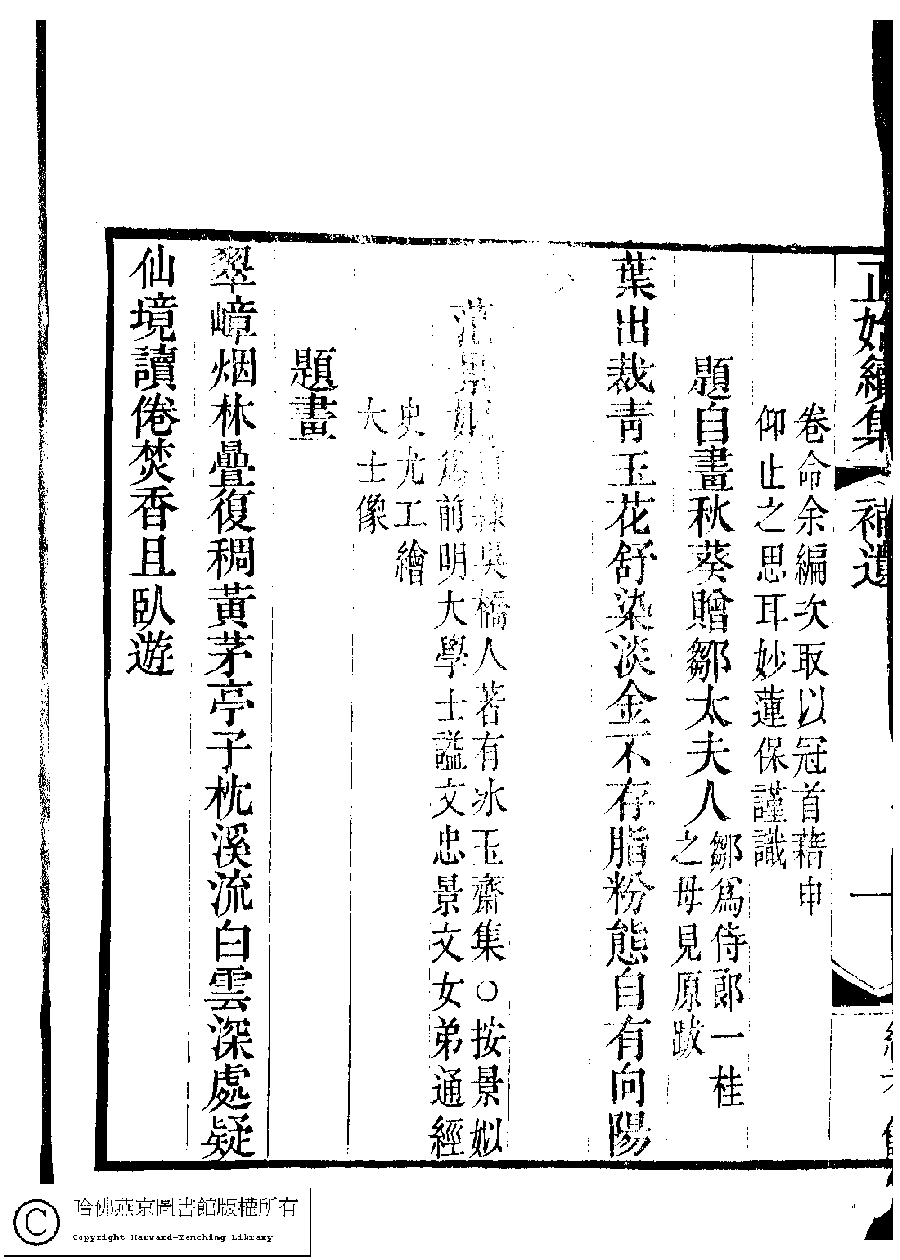 正始續集 補遺 一
卷命余編次取以冠首藉申
仰止之思耳妙蓮保謹識
題自畫秋葵贈鄒太夫人鄒爲侍郞一桂
之母見原跋
葉出裁靑玉花舒染淡金不存脂粉態自有向陽
景姒 吳橋人若有冰玉齋集○按景姒
爲前明大學士謚文忠景文女弟通經
史尤工繪
大士像
題畫
翠嶂烟林疊復稠黃茅亭子枕溪流白雲深處疑
仙境讀倦焚香且臥遊
哈佛燕京圖書館版權所有
Copyright Harvard-Yenching Library